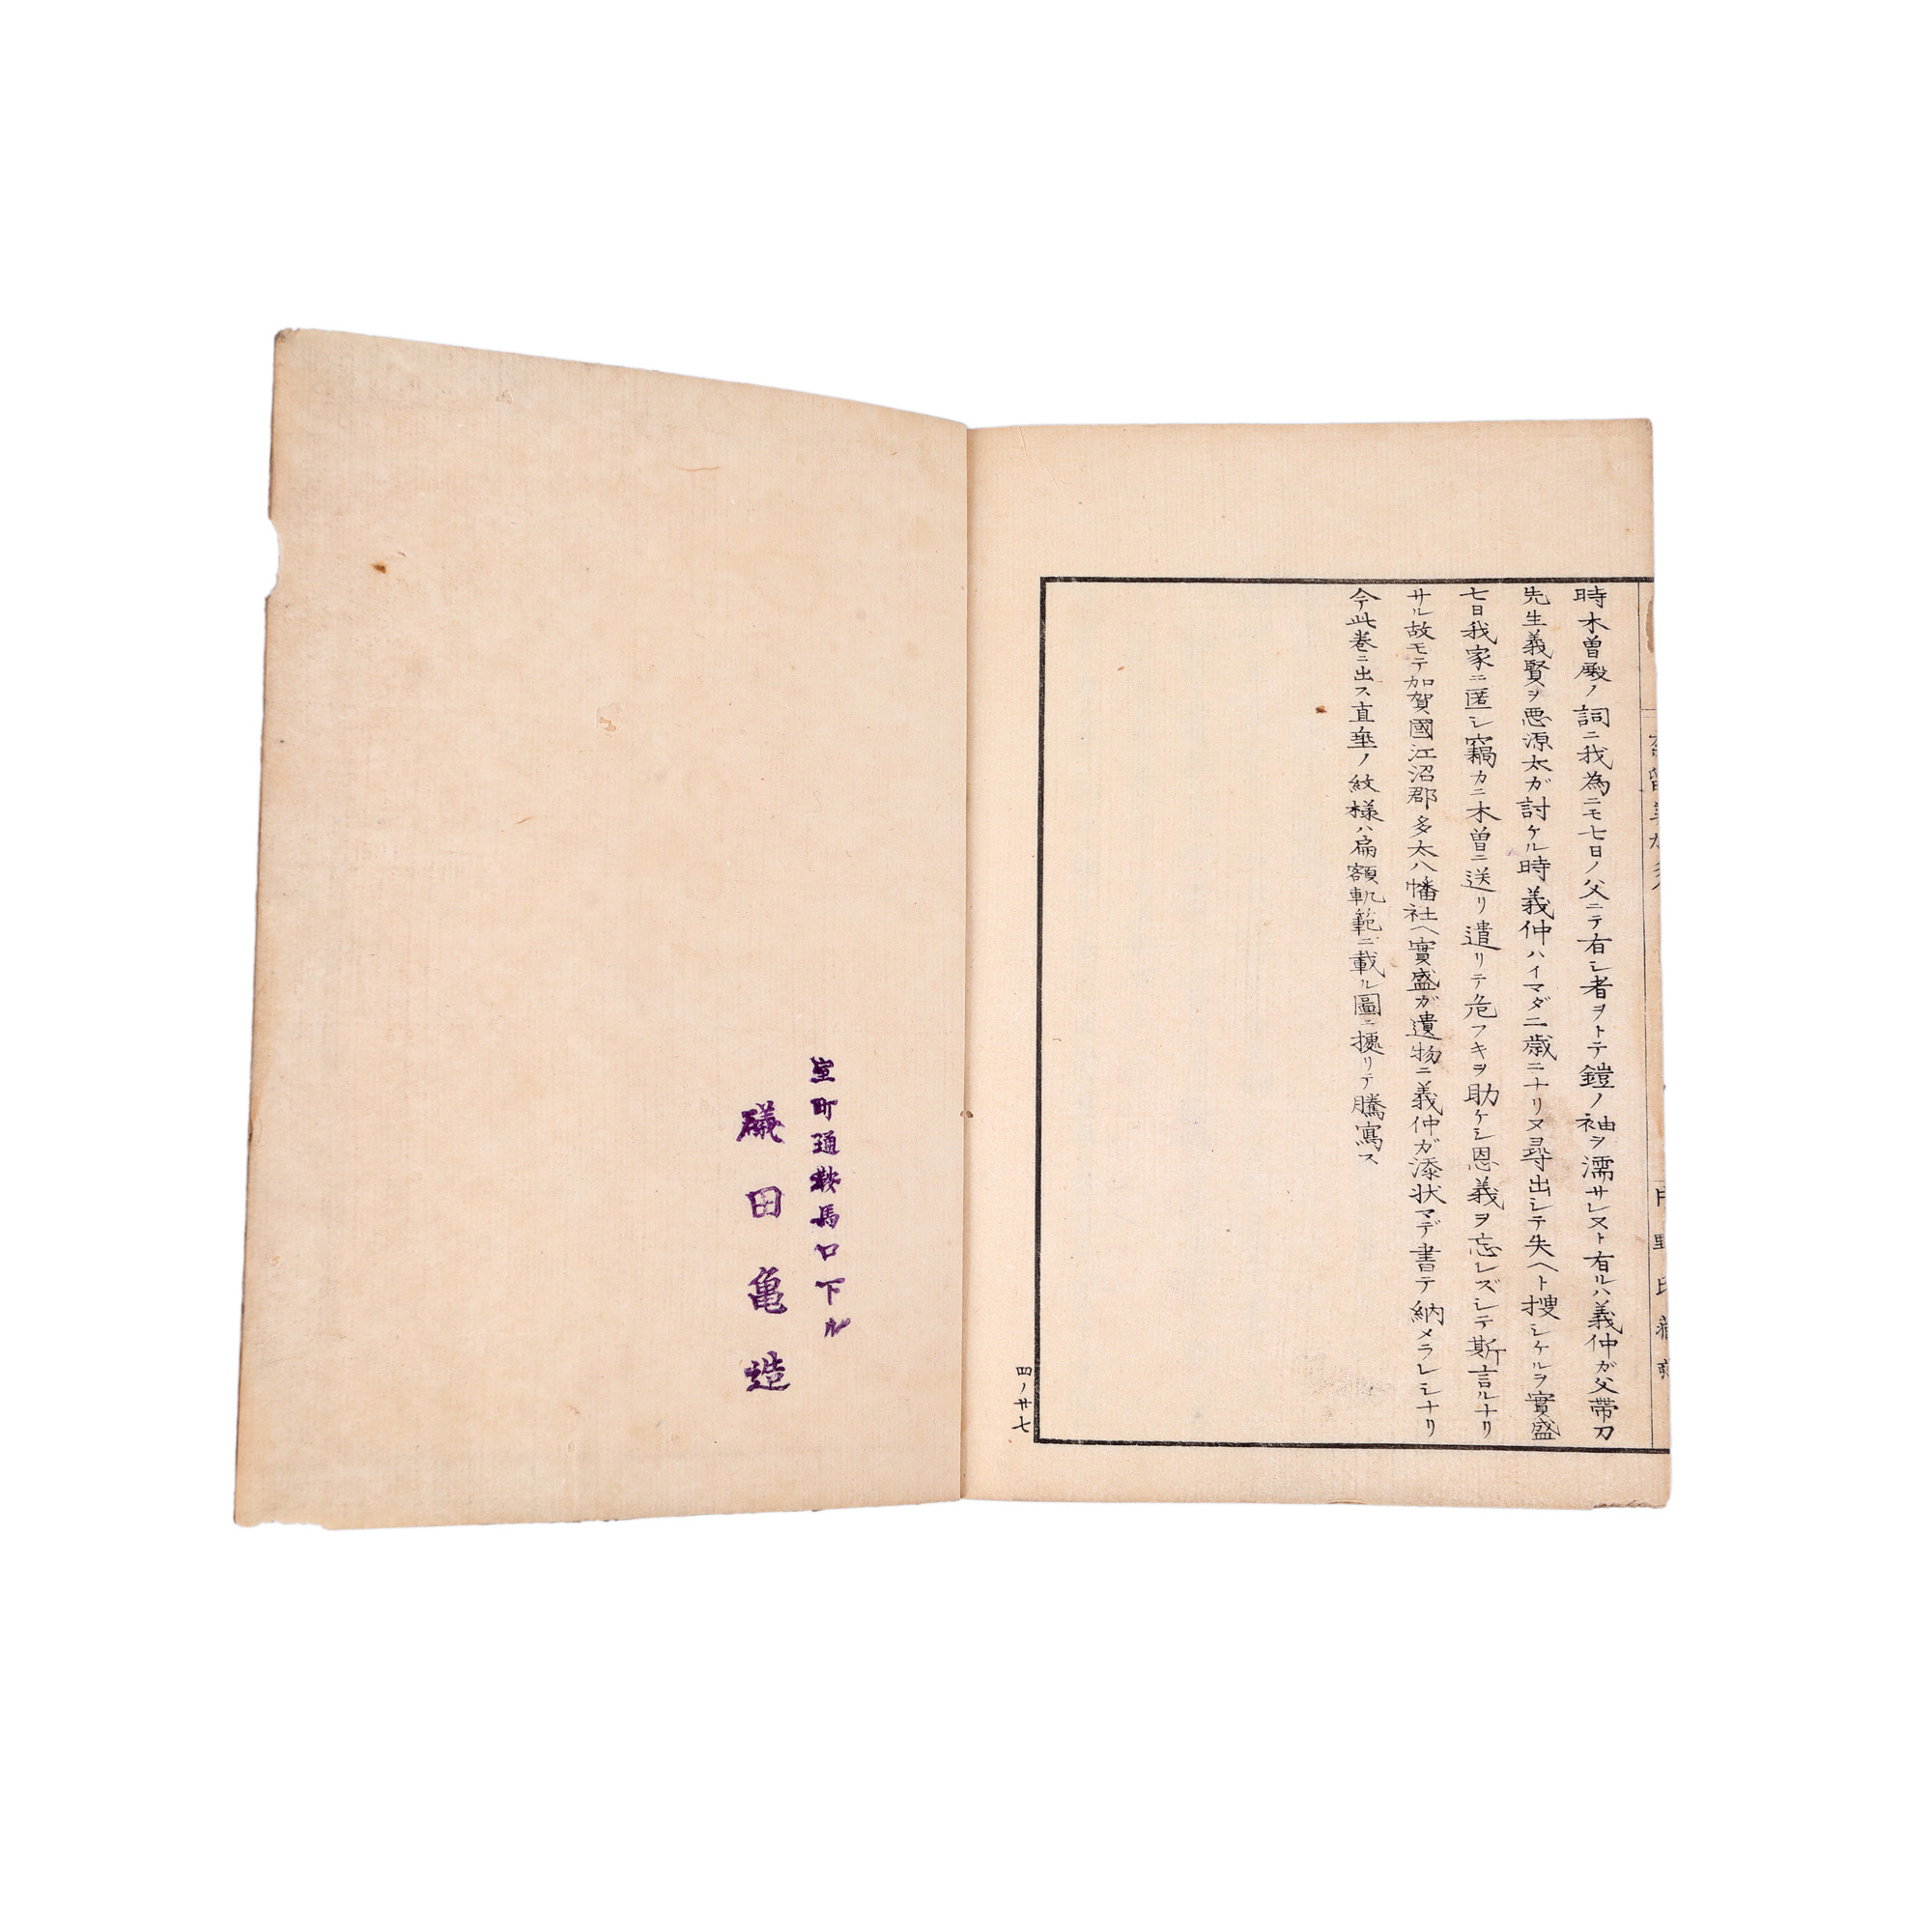 時木曽殿ノ詞ニ我為ニモ七日ノ父ニテ有シ者ヲトテ鎧ノ袖ヲ濡サレヌト有ルハ義仲ガ父帶刀
先生義賢ヲ悪源太ガ討ケル時義仲ハイマダ二歳ニナリヌ尋出シテ失ヘト搜シケルヲ實盛
七日我家ニ匿シ竊カニ木曽ニ送リ遣リテ危フキヲ助ケシ恩義ヲ忘レズシテ斯言ルナリ
サル故モテ加賀國江沼郡多太八幡社ヘ實盛ガ遺物ニ義仲ガ添状マデ書テ納メラレシナリ
今此巻ニ出ス直垂ノ紋様ハ扁額軌範ニ載ル圖ニ擾リテ騰寫ス
四ノ廿七
室町通鞍馬口下ル
礒田亀造